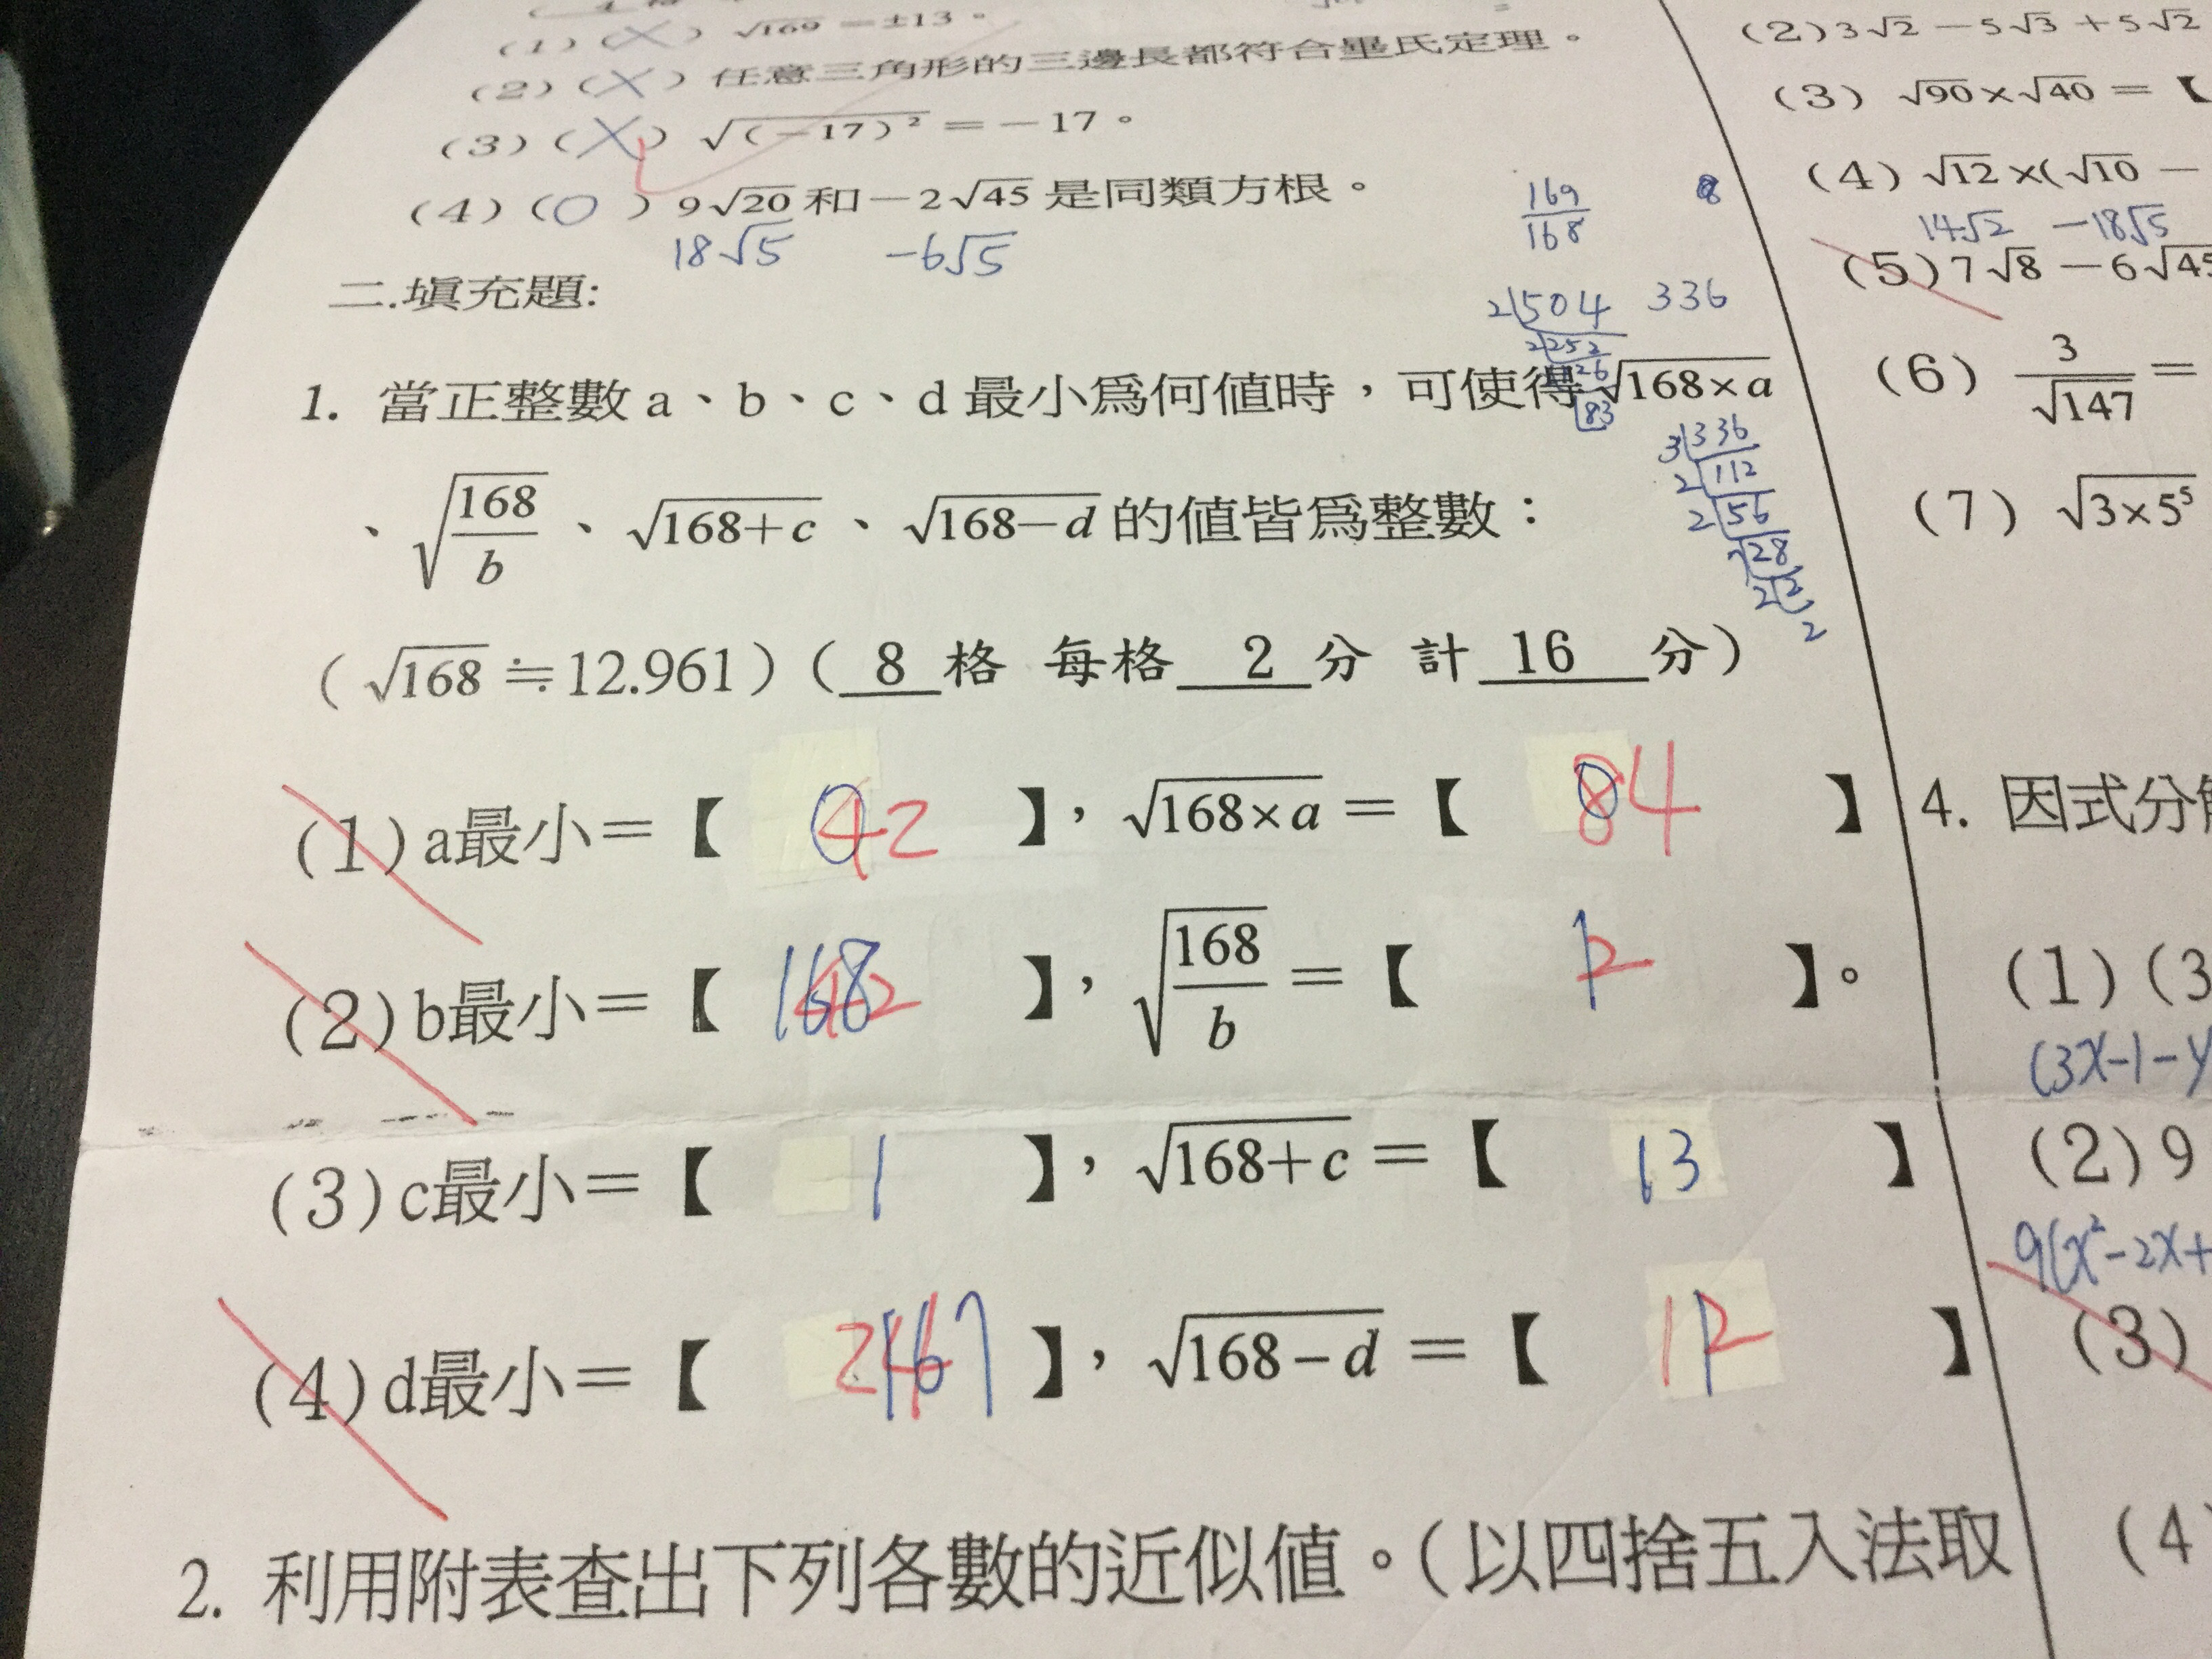 (1)(X) √169 = ±13。
(2)(X) 任意三角形的三邊長都符合畢氏定理。
(3)(X) √(-17)² = -17。
(4)(O) 9√20 和 -2√45 是同類方根。
18√5 -6√5
二.填充題:
169/168 8
2 504 336
2 252
126
83
1. 當正整數 a、b、c、d 最小為何值時，可使得 √168×a
、√168/b、√168+c、√168-d 的值皆為整數：
3 336
2 112
2 56
28
2
2
(√168≒12.961)( 8 格 每格 2 分 計 16 分)
(1) a最小=【 0 42 】，√168×a =【 0 84 】
(2) b最小=【 168 42 】，√168/b =【 1 2 】。
(3) c最小=【 1 】，√168+c =【 13 】
(4) d最小=【 167 24 】，√168-d =【 1 12 】
2. 利用附表查出下列各數的近似值。(以四捨五入法取
(2) 3√2 - 5√3 + 5√2
(3) √90×√40 =【
(4) √12×(√10 -
14√2 -18√5
(5) 7√8 - 6√45
(6) 3/√147 =
(7) √3×5⁵
4. 因式分
(1) (3
(3x-1-y
(2) 9
9(x²-2x+
(3)
(4)